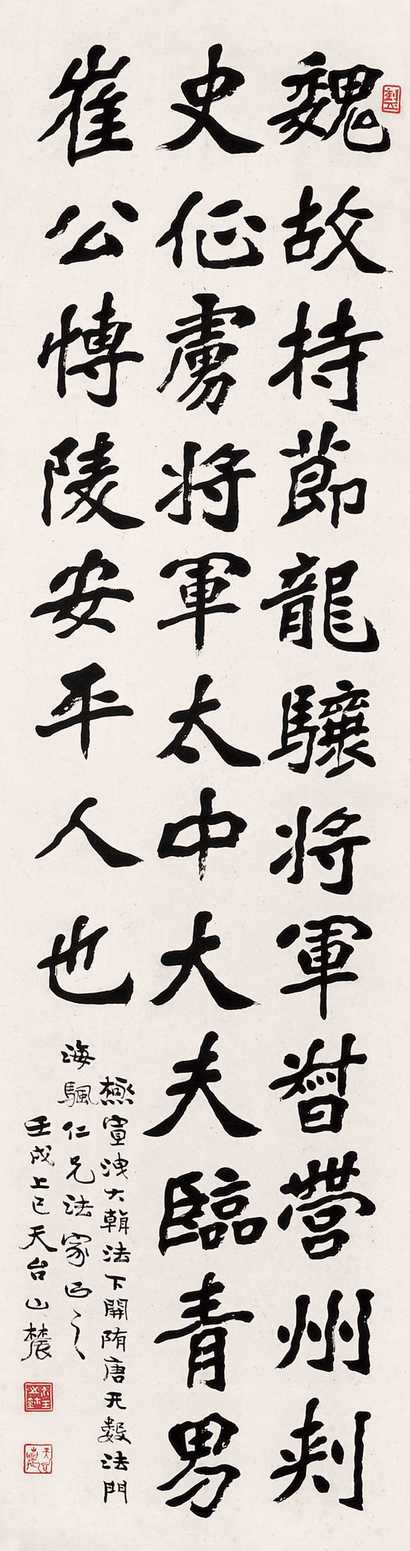 魏故持節龍驤将軍督營州刾
史征虜将軍太中大夫臨青男
崔公愽陵安平人也
宣洩大法下開隋唐无數法門
海颿仁兄法家正之
壬戌上巳天台山農